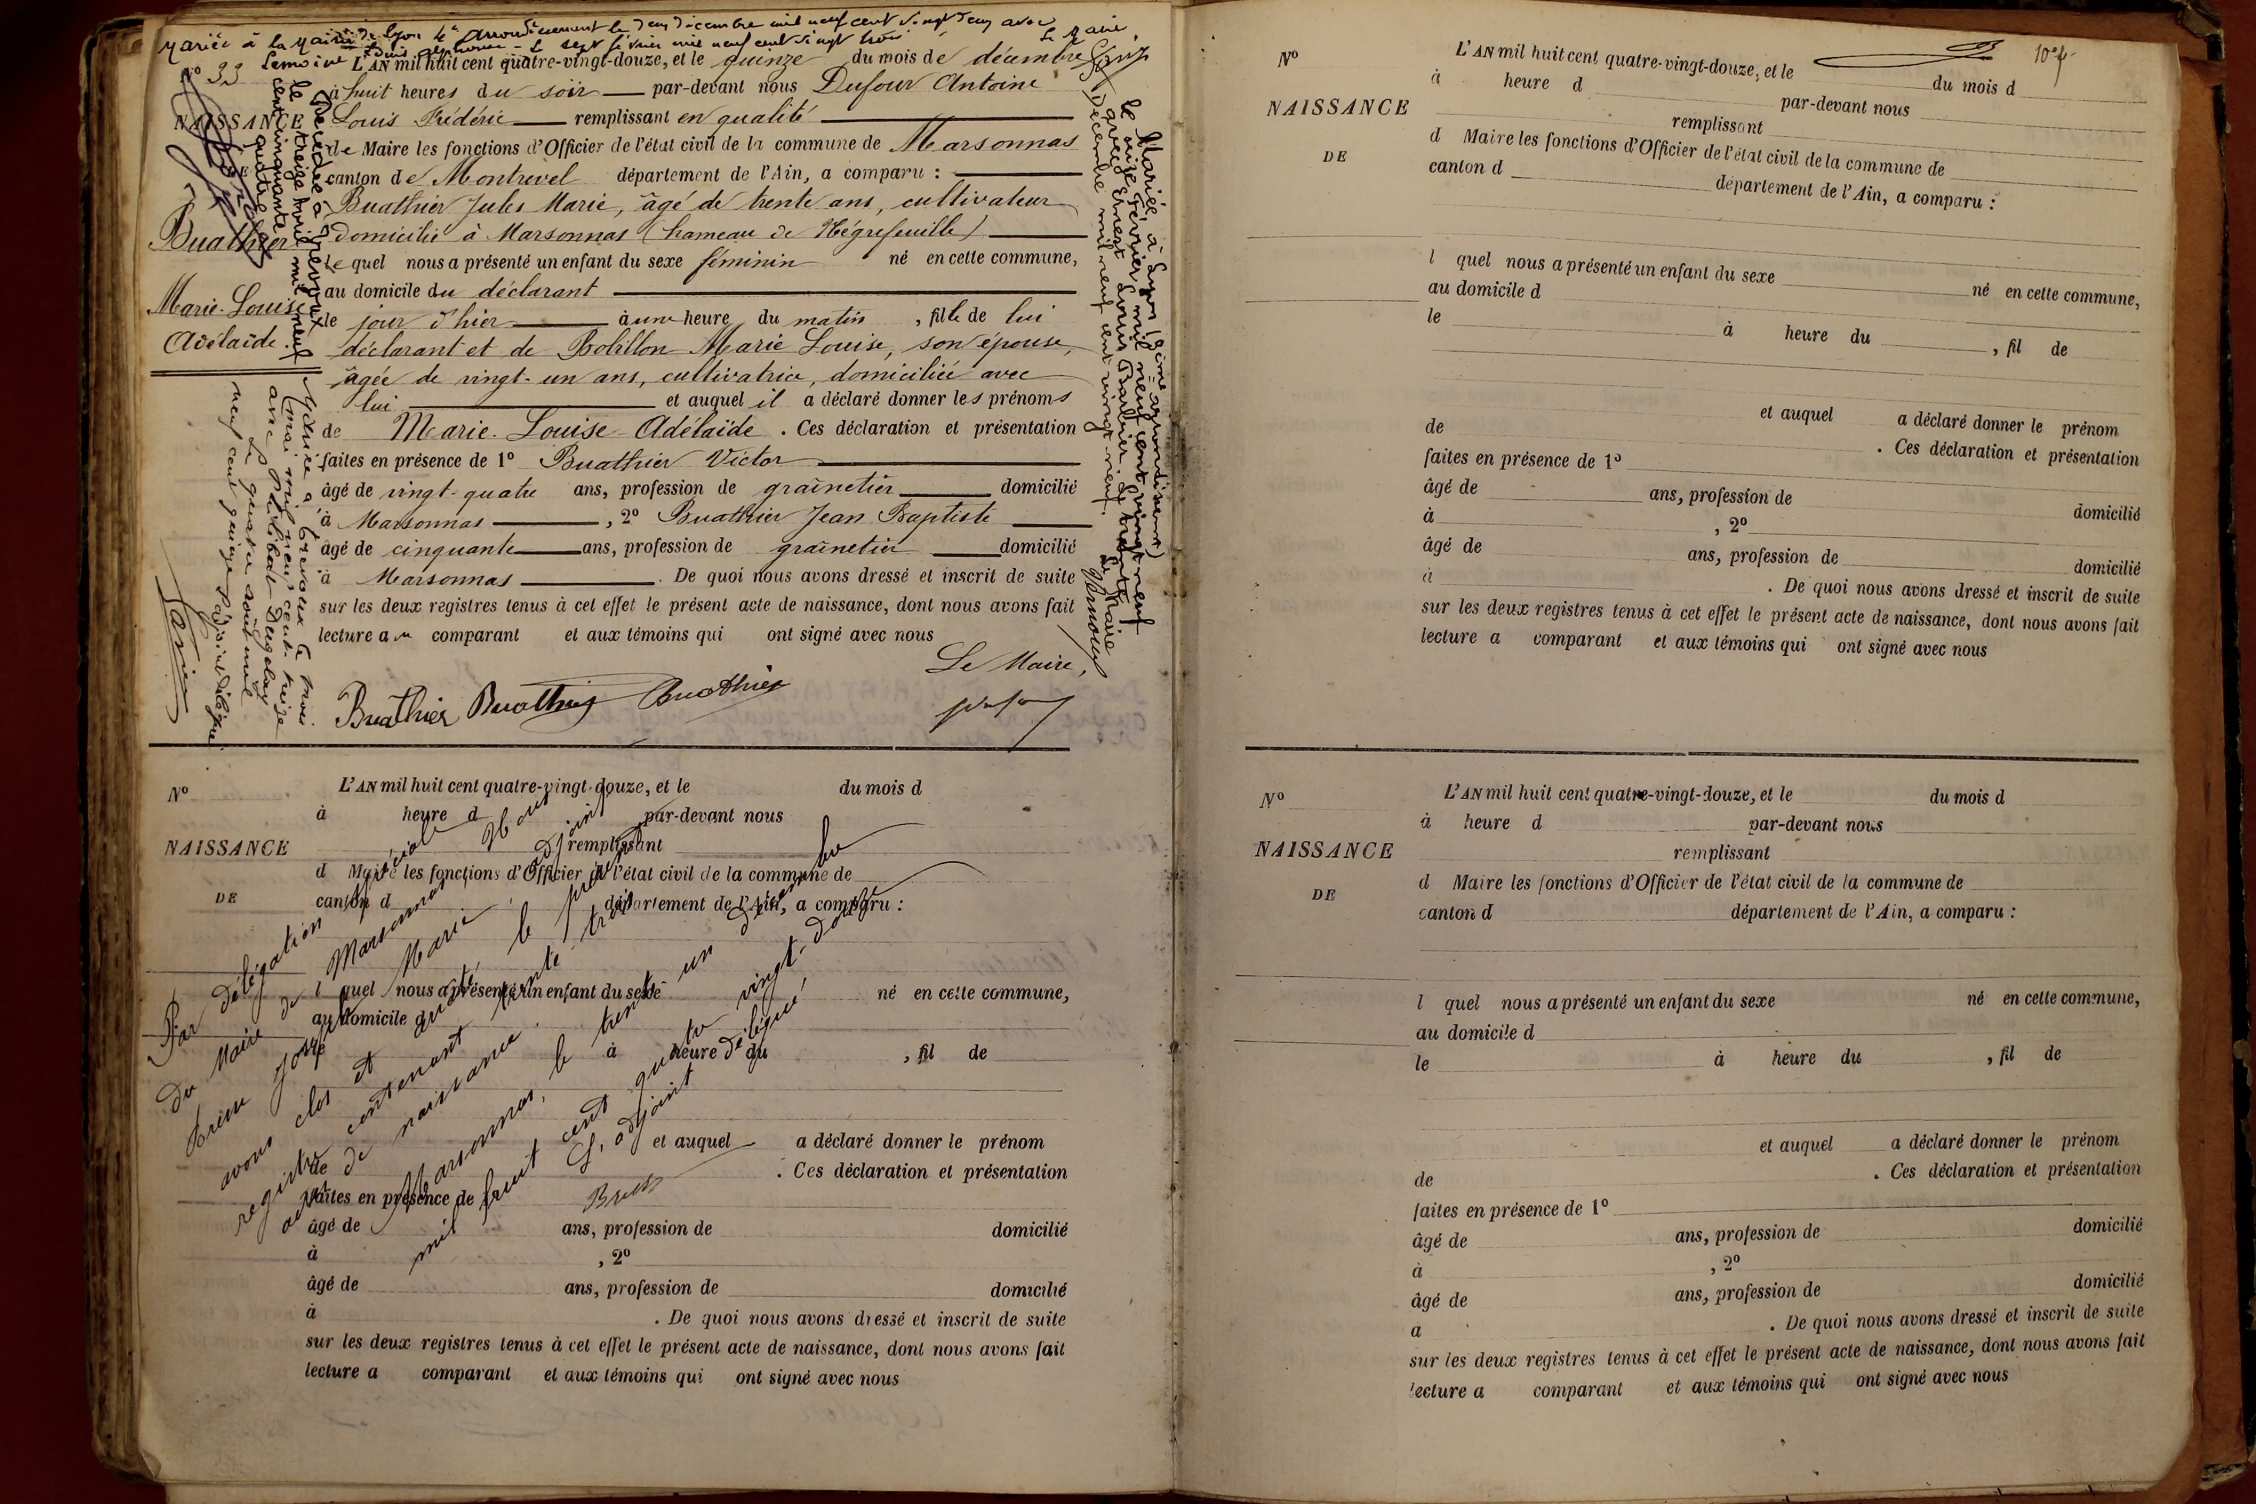 Mariée à la Mairie de Lyon 4e Arrondissement le deux décembre mil neuf cent vingt deux avec
Lemoine Louis Alphonse - Le sept février mil neuf cent vingt trois
Le Maire,
No 33
NAISSANCE
DE
Buathier
Marie-Louise
Adélaïde.
L'AN mil huit cent quatre-vingt-douze, et le quinze du mois de décembre
à huit heures du soir par-devant nous Dufour Antoine
Louis Frédéric remplissant en qualité
de Maire les fonctions d'Officier de l'état civil de la commune de Marsonnas
canton de Montrevel département de l'Ain, a comparu :
Buathier Jules Marie, âgé de trente ans, cultivateur
domicilié à Marsonnas (hameau de Négrefeuille)
lequel nous a présenté un enfant du sexe féminin né en cette commune,
au domicile du déclarant
le jour d'hier à une heure du matin, fille de lui
déclarant et de Bobillon Marie Louise, son épouse,
âgée de vingt-un ans, cultivatrice, domiciliée avec
lui et auquel il a déclaré donner les prénoms
de Marie-Louise-Adélaïde. Ces déclaration et présentation
faites en présence de 1o Buathier Victor
âgé de vingt-quatre ans, profession de grainetier domicilié
à Marsonnas, 2o Buathier Jean Baptiste
âgé de cinquante ans, profession de grainetier domicilié
à Marsonnas. De quoi nous avons dressé et inscrit de suite
sur les deux registres tenus à cet effet le présent acte de naissance, dont nous avons fait
lecture au comparant et aux témoins qui ont signé avec nous
Le Maire,
Buathier Buathier Buathier
Décédée à Trévoux
le treize avril mil neuf
cent cinquante
quatre
Mariée à Trévoux le trois
mai mil neuf cent treize
avec Philibert Dugelay
Le quatre août mil
neuf cent quinze
L'adjoint délégué
Mariée à Lyon (2ème arrondissement)
le seize février mil neuf cent vingt neuf
avec Ernest Louis Barbier
Décembre mil neuf cent vingt neuf.
Le Maire
No
NAISSANCE
DE
L'AN mil huit cent quatre-vingt-douze, et le du mois d
à heure d par-devant nous
remplissant
d Maire les fonctions d'Officier de l'état civil de la commune de
canton d département de l'Ain, a comparu :
l quel nous a présenté un enfant du sexe né en cette commune,
au domicile d
le à heure du , fil de
et auquel a déclaré donner le prénom
de . Ces déclaration et présentation
faites en présence de 1o
âgé de ans, profession de domicilié
à , 2o
âgé de ans, profession de domicilié
à . De quoi nous avons dressé et inscrit de suite
sur les deux registres tenus à cet effet le présent acte de naissance, dont nous avons fait
lecture a comparant et aux témoins qui ont signé avec nous
Par délégation spéciale
du Maire de Marsonnas, Nous
Joseph Marie, adjoint
avons clos et arrêté le présent
registre contenant trente-trois
actes de naissance.
Marsonnas, le trente un décembre
mil huit cent quatre vingt-douze
L'adjoint délégué,
No
NAISSANCE
DE
L'AN mil huit cent quatre-vingt-douze, et le du mois d
à heure d par-devant nous
remplissant
d Maire les fonctions d'Officier de l'état civil de la commune de
canton d département de l'Ain, a comparu :
l quel nous a présenté un enfant du sexe né en cette commune,
au domicile d
le à heure du , fil de
et auquel a déclaré donner le prénom
de . Ces déclaration et présentation
faites en présence de 1o
âgé de ans, profession de domicilié
à , 2o
âgé de ans, profession de domicilié
à . De quoi nous avons dressé et inscrit de suite
sur les deux registres tenus à cet effet le présent acte de naissance, dont nous avons fait
lecture a comparant et aux témoins qui ont signé avec nous
No
NAISSANCE
DE
L'AN mil huit cent quatre-vingt-douze, et le du mois d
à heure d par-devant nous
remplissant
d Maire les fonctions d'Officier de l'état civil de la commune de
canton d département de l'Ain, a comparu :
l quel nous a présenté un enfant du sexe né en cette commune,
au domicile d
le à heure du , fil de
et auquel a déclaré donner le prénom
de . Ces déclaration et présentation
faites en présence de 1o
âgé de ans, profession de domicilié
à , 2o
âgé de ans, profession de domicilié
a . De quoi nous avons dressé et inscrit de suite
sur les deux registres tenus à cet effet le présent acte de naissance, dont nous avons fait
lecture a comparant et aux témoins qui ont signé avec nous